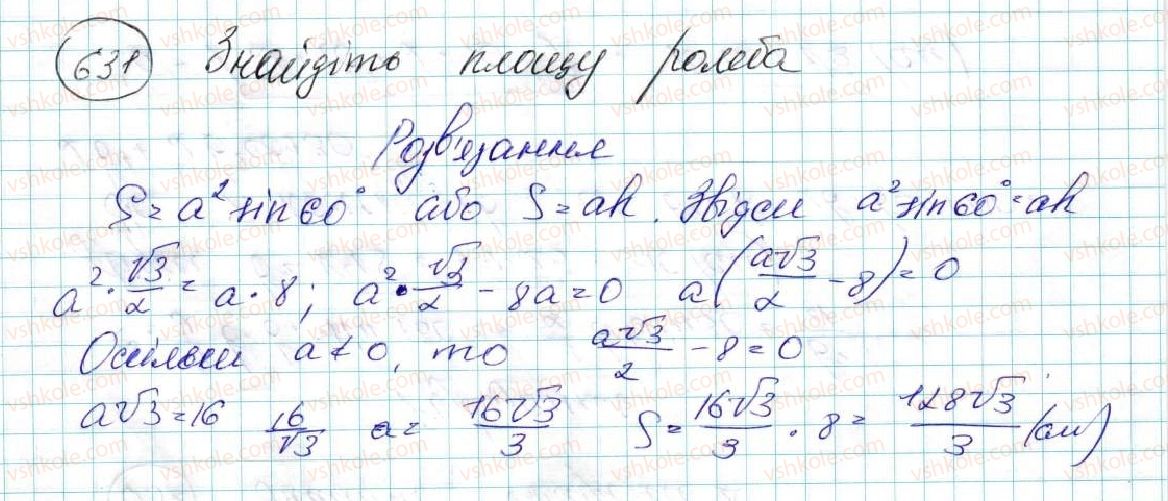 631 Знайдіть площу ромба
Розв'язання
S = a² sin 60° або S = ah. Звідси a² sin 60° = ah
a² · √3/2 = a · 8; a² · √3/2 - 8a = 0 a(a√3/2 - 8) = 0
Оскільки a ≠ 0, то a√3/2 - 8 = 0
a√3 = 16 16/√3 a = 16√3/3 S = 16√3/3 · 8 = 128√3/3 (см)